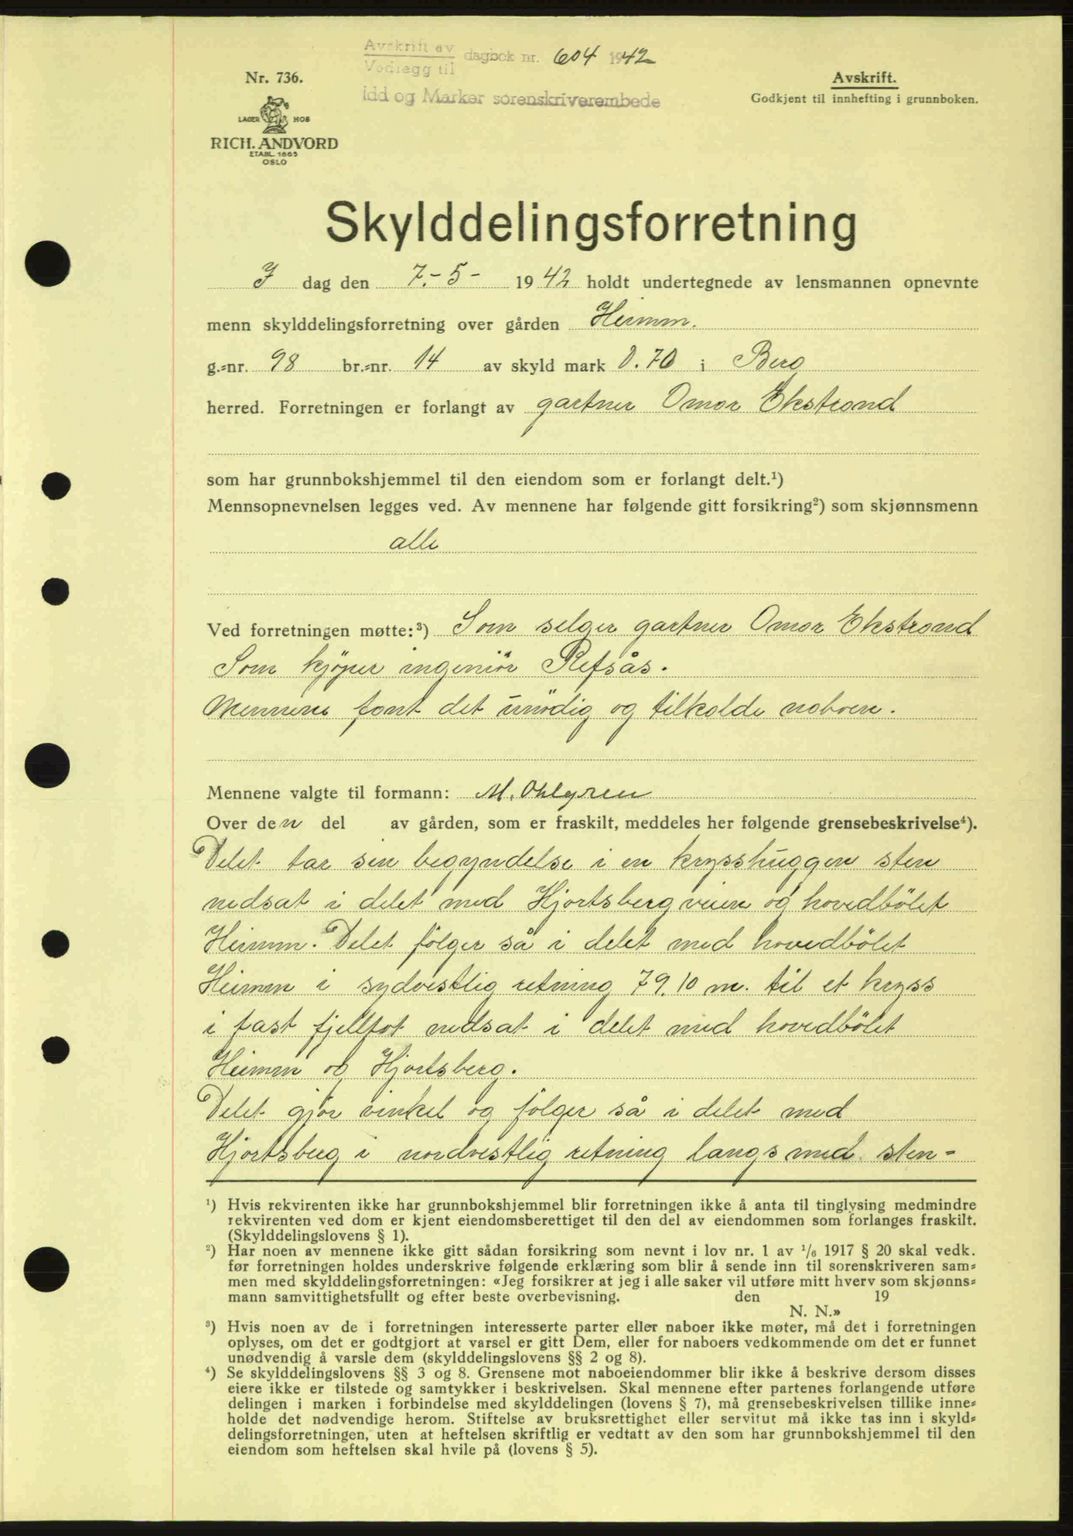 Avskrift av
Vedlegg til
dagbok nr. 604 1942
Idd og Marker sorenskriverembede
Nr. 736.
LAGER HOS
RICH. ANDVORD
ETABL. 1865
OSLO
Avskrift.
Godkjent til innhefting i grunnboken.
Skylddelingsforretning
I dag den 7.-5- 1942 holdt undertegnede av lensmannen opnevnte
menn skylddelingsforretning over gården Heimm.
g.=nr. 98 br.=nr. 14 av skyld mark 0.70 i Berg
herred. Forretningen er forlangt av gartner Omar Ekstrand
som har grunnbokshjemmel til den eiendom som er forlangt delt.¹)
Mennsopnevnelsen legges ved. Av mennene har følgende gitt forsikring²) som skjønnsmenn
alle
Ved forretningen møtte:³) Som selger gartner Omar Ekstrand
Som kjøper ingeniör Refsås.
Mennene fant det unödig og tilkalde naboer.
Mennene valgte til formann: M. Ohlgren
Over den del av gården, som er fraskilt, meddeles her følgende grensebeskrivelse⁴).
Delet tar sin begyndelse i en krysshuggen sten
nedsat i delet med Hjortsbergveien og hovedbölet
Heimm. Delet fölger så i delet med hovedbölet
Heimm i sydvestlig retning 79.10 m. til et kryss
i fast fjellfot nedsat i delet med hovedbölet
Heimm og Hjortsberg.
Delet gjör vinkel og fölger så i delet med
Hjortsberg i nordvestlig retning langs med sten-
¹) Hvis rekvirenten ikke har grunnbokshjemmel blir forretningen ikke å anta til tinglysing medmindre
rekvirenten ved dom er kjent eiendomsberettiget til den del av eiendommen som forlanges fraskilt.
(Skylddelingslovens § 1).
²) Har noen av mennene ikke gitt sådan forsikring som nevnt i lov nr. 1 av 1/6 1917 § 20 skal vedk.
før forretningen holdes underskrive følgende erklæring som blir å sende inn til sorenskriveren sam=
men med skylddelingsforretningen: «Jeg forsikrer at jeg i alle saker vil utføre mitt hverv som skjønns=
mann samvittighetsfullt og efter beste overbevisning. den 19
N. N.»
³) Hvis noen av de i forretningen interesserte parter eller naboer ikke møter, må det i forretningen
oplyses, om det er godtgjort at varsel er gitt Dem, eller for naboers vedkommende om det er funnet
unødvendig å varsle dem (skylddelingslovens §§ 2 og 8).
⁴) Se skylddelingslovens §§ 3 og 8. Grensene mot naboeiendommer blir ikke å beskrive dersom disses
eiere ikke er tilstede og samtykker i beskrivelsen. Skal mennene efter partenes forlangende utføre
delingen i marken i forbindelse med skylddelingen (lovens § 7), må grensebeskrivelsen tillike inne=
holde det nødvendige herom. Stiftelse av bruksrettighet eller servitut må ikke tas inn i skyld=
delingsforretningen, uten at heftelsen skriftlig er vedtatt av den som har grunnbokshjemmel til den
eiendom som heftelsen skal hvile på (lovens § 5).